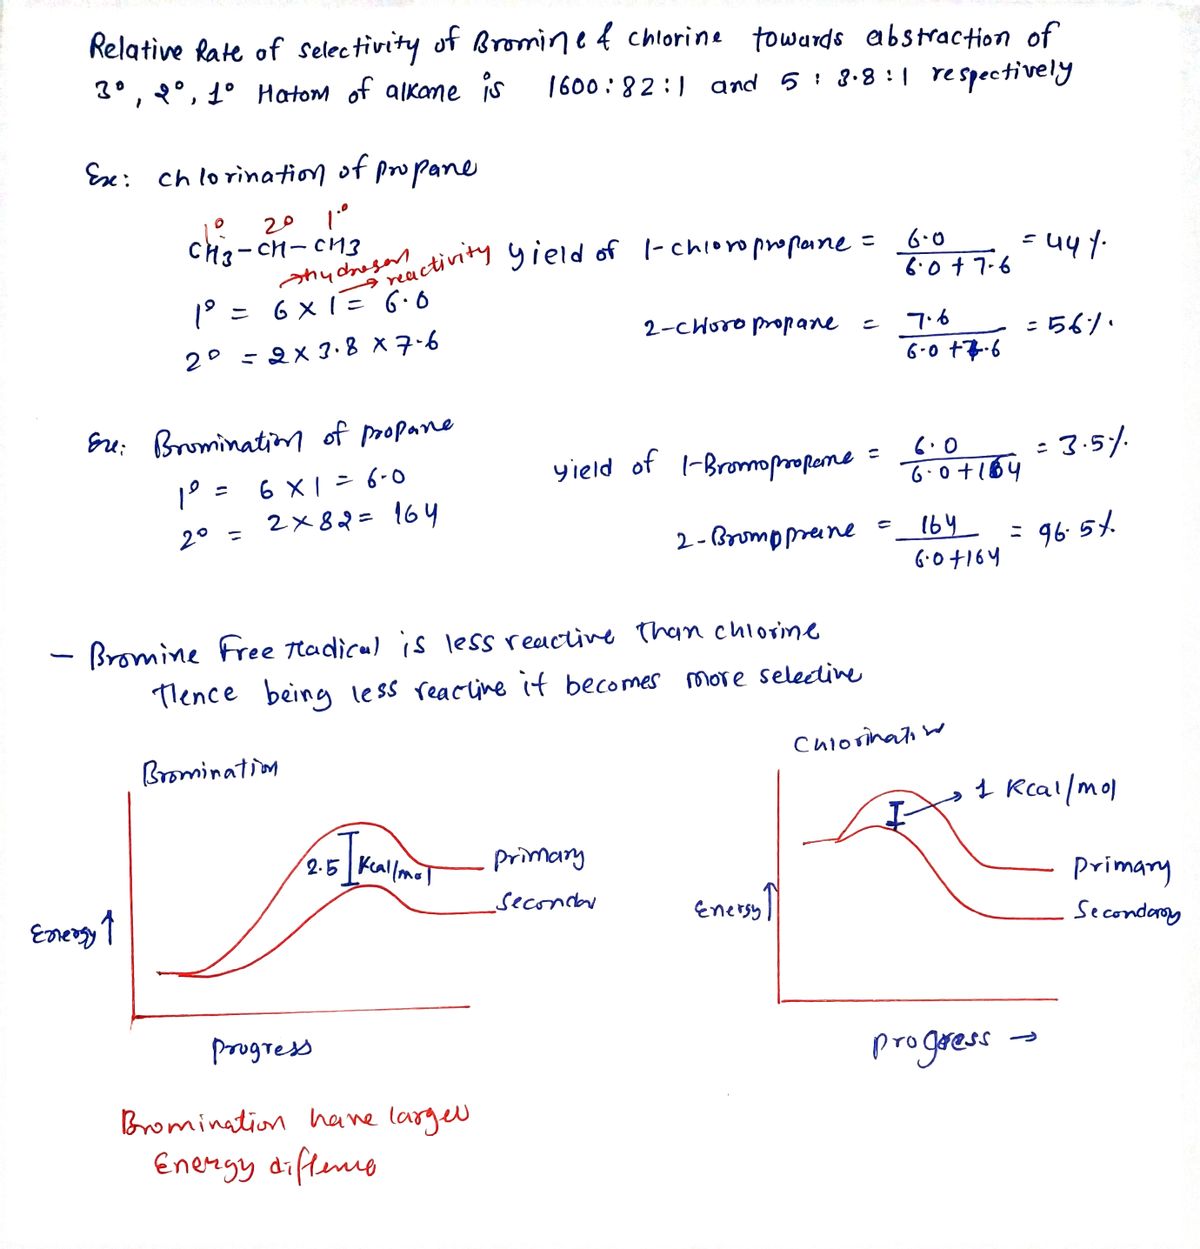 Relative Rate of selectivity of Bromine & chlorine towards abstraction of
3°, 2°, 1° Hatom of alkane is 1600:82:1 and 5:3.8:1 respectively
Ex: chlorination of propane
1° 2° 1°
CH3-CH-CH3
→hydrogen
→ reactivity
1° = 6 × 1 = 6.0
2° = 2 × 3.8 × 7.6
yield of 1-chloropropane = 6.0 / 6.0 + 7.6 = 44 %
2-chloro propane = 7.6 / 6.0 + 7.6 = 56%
Ex: Bromination of propane
1° = 6 × 1 = 6.0
2° = 2 × 82 = 164
yield of 1-Bromopropane = 6.0 / 6.0 + 164 = 3.5%
2-Bromopprane = 164 / 6.0 + 164 = 96.5%
- Bromine Free radical is less reactive than chlorine
Hence being less reactive it becomes more selective
Bromination
2.5 Kcal/mol
primary
Secondar
Energy ↑
progress
Chlorination
1 Kcal/mol
primary
Secondary
Energy ↑
progress →
Bromination have larger
Energy diffence